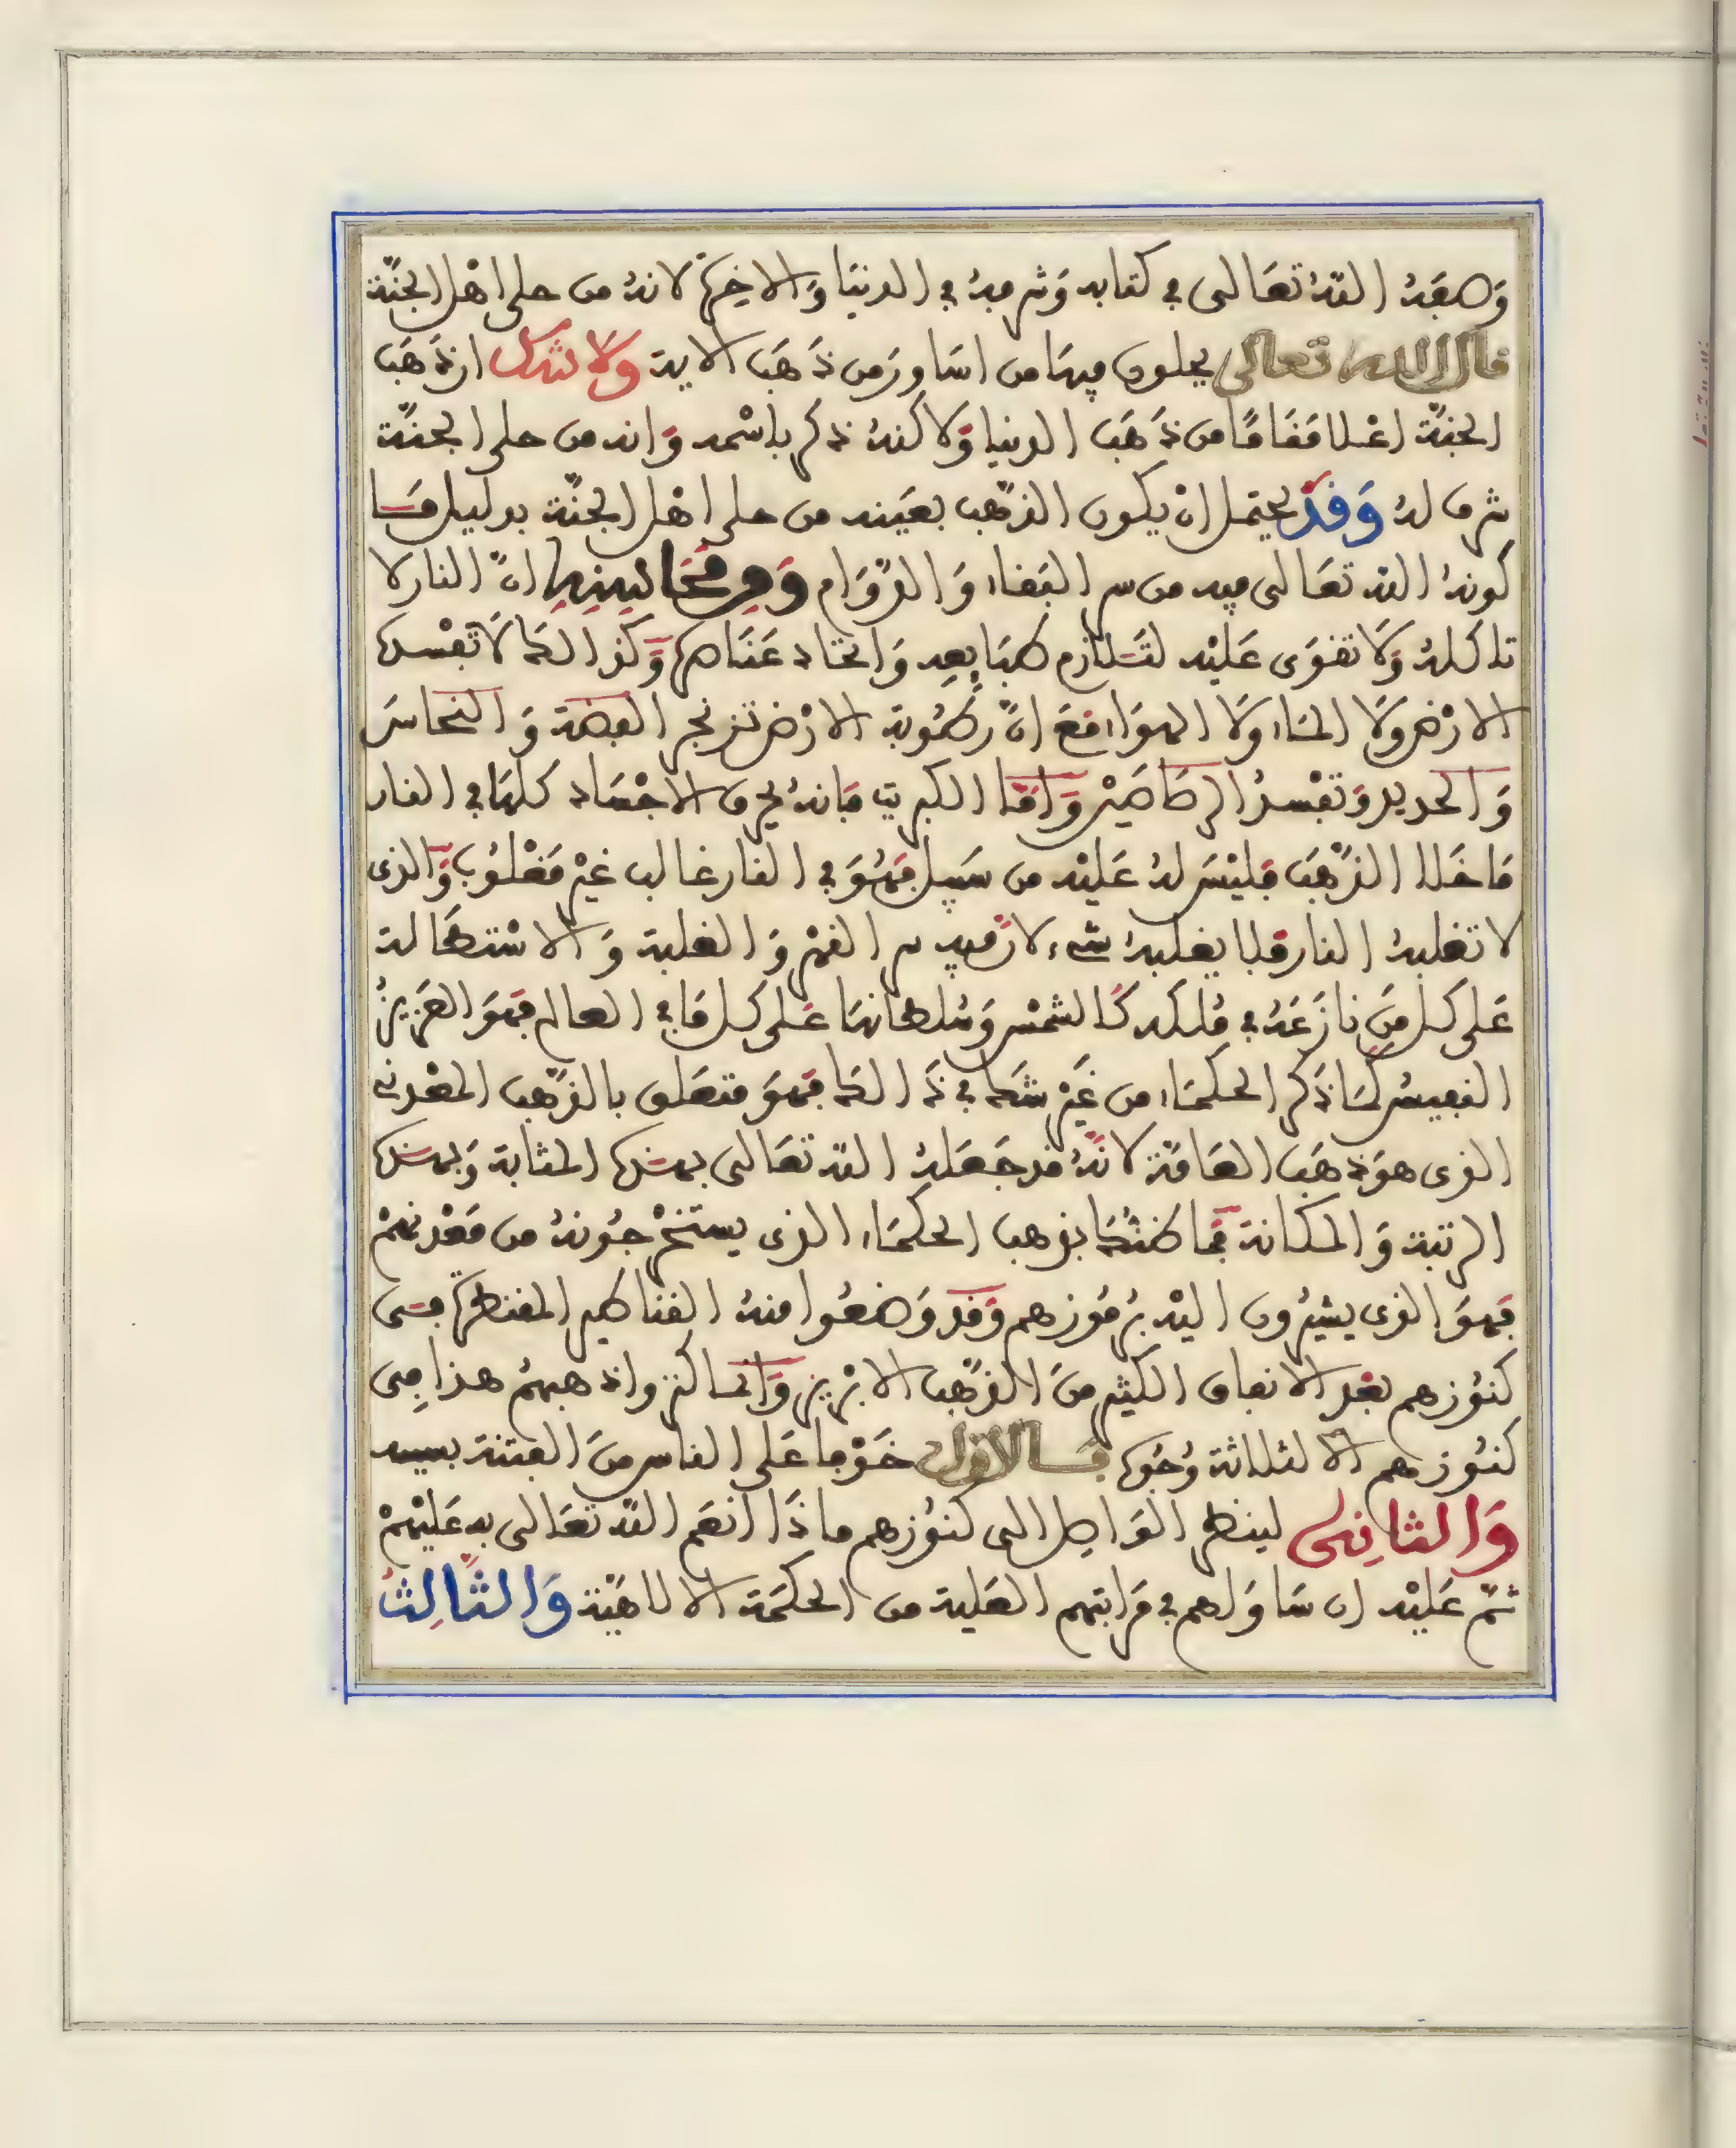 وَصفَهُ اللهُ تعَالى في كتابه وَشرفهُ في الدنيَا وَالاخِرَة لانهُ من حلى اهْل الجنَّة
قال الله تعالى يحلون فيهَا من اسَاور مِن ذَهَب الاية وَلا شك ان ذَهَب
الجنَّة اعْلا مَقَامًا من ذَهَب الدنيا وَلاكنهُ ذكر باسْمه وَانه من حلى الجنَّة
شرفا لهُ وَقَدْ يحتمل انْ يكون الذهَب بعَينه من حلى اهْل الجنَّة بدليل مَا
كونهُ الله تعَالى فيه من سر البَقاء وَالدَّوَام وَمِن مَحَاسِنِهِ انَّ النار لا
تاكلهُ وَلا تقوَى عَليْه لتَلازم طبَايعِه وَاتحاد عَنَاصره وَكذالك لا تفْسده
الارْض وَلا المَاء وَلا الهوَاء مَعَ انَّ رطُوبة الارْض تزنجر الفضة وَالنحاس
وَالحديد وَتفْسدُ الرصَاصَيْن وَامَّا الكبريت فانهُ يحرق الاجْسَاد كلهَا في النار
مَا خَلا الذَّهَب فليْسَ لهُ عَليْه من سَبيل فهُوَ في النار غالب غيْر مَغْلُوب وَالذى
لا تغلبهُ النار فلا يغلبهُ شىء لان فيه سر القهْر وَالغلبة وَالاسْتطَالة
عَلى كل مَن نازَعَهُ في مُلكه كَالشمْس وَسُلطانهَا عَلى كل مَا في العالم فهوَ العَزيزُ
النفيسُ كمَا ذكر الحكمَاء من غَيْر شَك في ذَالك فهوَ متعَلق بالذَّهَب المعْدني
الذى هوَ ذهَب العَامَّة لانَّهُ قد جَعَلهُ الله تعَالى بهَذه المثابة وَبهَذه
الرتبة وَالمكانة فَما ظنُّكَ بذهب الحكمَاء الذى يستخْرجُونهُ من مَعْدنهمْ
فهوَ الذى يشيرُون اليْه برمُوزهم وَقد وَضعُوا منهُ القناطير المقنطرة فى
كنُوزهم بعْد الانفاق الكثير مِنَ الذَّهَب الابْريز وَانما كنزوا ذهبهُمْ هذا فِى
كنُوزهم الا لثلاثة وُجُوه فالاول خَوْفا عَلى الناس مِنَ الفتنة بسببه
وَالثانِى لينظر الوَاصِل الى كنُوزهم ماذَا انعَم الله تعَالى به عَليْهمْ
ثمّ عَليْه ان سَاوَاهم في مَرَاتبهم العَلية من الحكمَة الالاهيَّة وَالثَّالِثُ